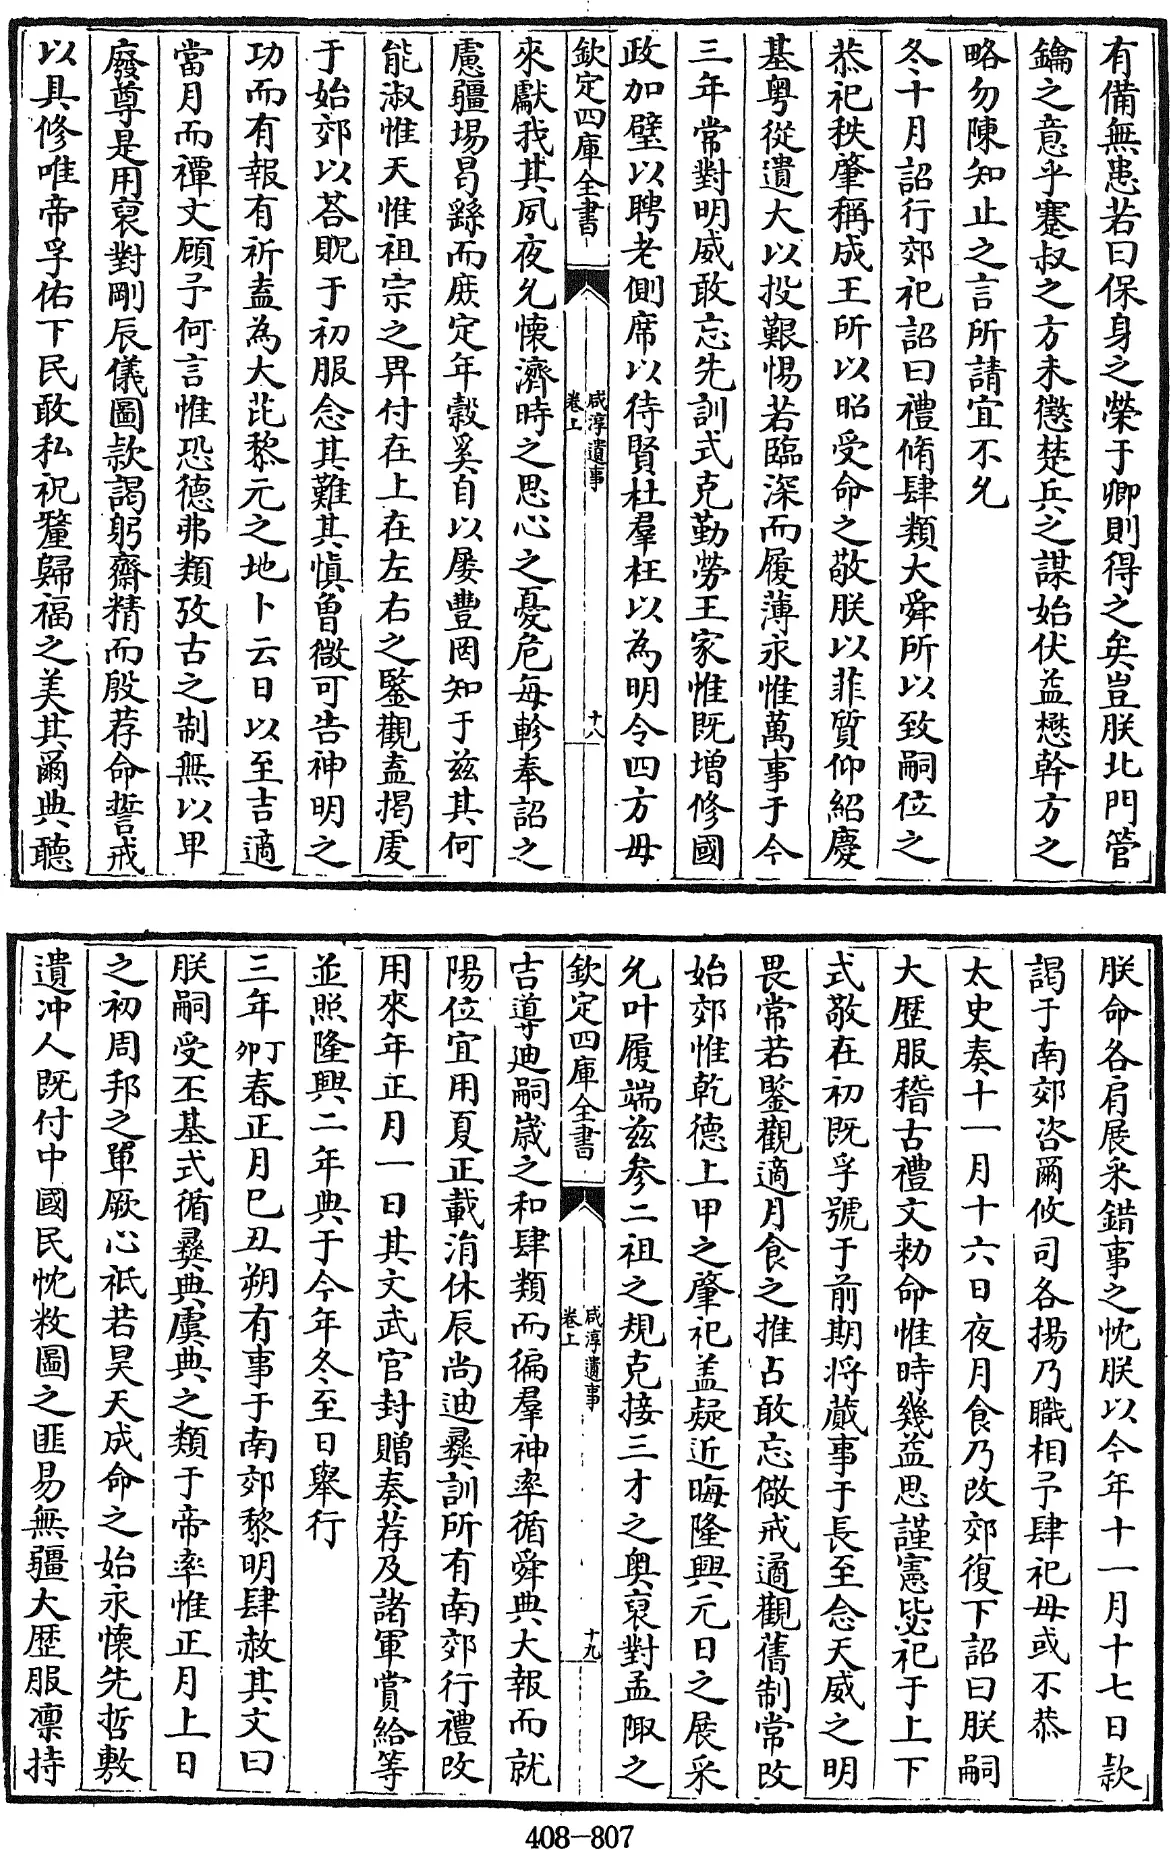 有備無患若曰保身之榮于卿則得之矣豈朕北門管
鑰之意乎蹇叔之方未懲楚兵之謀始伏益懋幹方之
略勿陳知止之言所請宜不允
冬十月詔行郊祀詔曰禮脩肆類大舜所以致嗣位之
恭祀秩肇稱成王所以昭受命之敬朕以菲質仰紹慶
基粤從遺大以投艱惕若臨深而履薄永惟萬事于今
三年常對明威敢忘先訓式克勤勞王家惟既增修國
政加璧以聘老側席以待賢杜羣枉以為明令四方毋
欽定四庫全書
咸淳遺事
卷上
十八
來獻我其夙夜允懷濟時之思心之憂危每軫奉詔之
慮疆埸曷繇而底定年穀奚自以屢豐罔知于兹其何
能淑惟天惟祖宗之畀付在上在左右之鑒觀盍揭虔
于始郊以荅貺于初服念其難其慎曾微可告神明之
功而有報有祈盍為大芘黎元之地卜云日以至吉適
當月而禫文顧予何言惟恐德弗類攷古之制無以卑
廢尊是用裒對剛辰儀圖款謁躬齋精而殷荐命誓戒
以具修唯帝孚佑下民敢私祝釐歸福之美其爾典聽
朕命各肩展采錯事之忱朕以今年十一月十七日款
謁于南郊咨爾攸司各揚乃職相予肆祀毋或不恭
太史奏十一月十六日夜月食乃改郊復下詔曰朕嗣
大歴服稽古禮文勅命惟時幾益思謹憲毖祀于上下
式敬在初既孚號于前期将蕆事于長至念天威之明
畏常若鑒觀適月食之推占敢忘儆戒遹觀舊制常改
始郊惟乾德上甲之肇祀盖疑近晦隆興元日之展采
允叶履端兹参二祖之規克接三才之奥裒對孟陬之
欽定四庫全書
咸淳遺事
卷上
十九
吉導迪嗣歲之和肆類而徧羣神率循舜典大報而就
陽位宜用夏正載涓休辰尚迪彞訓所有南郊行禮改
用來年正月一日其文武官封贈奏荐及諸軍賞給等
並照隆興二年典于今年冬至日舉行
三年丁卯春正月己丑朔有事于南郊黎明肆赦其文曰
朕嗣受丕基式循彞典虞典之類于帝率惟正月上日
之初周邦之單厥心祗若昊天成命之始永懷先哲敷
遺冲人既付中國民忱敉圖之匪易無疆大歴服凛持
408-807